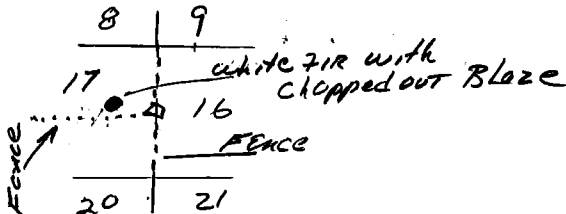 8 9
white FIR with
chopped out Blaze
17
16
Fence
FENCE
20 21